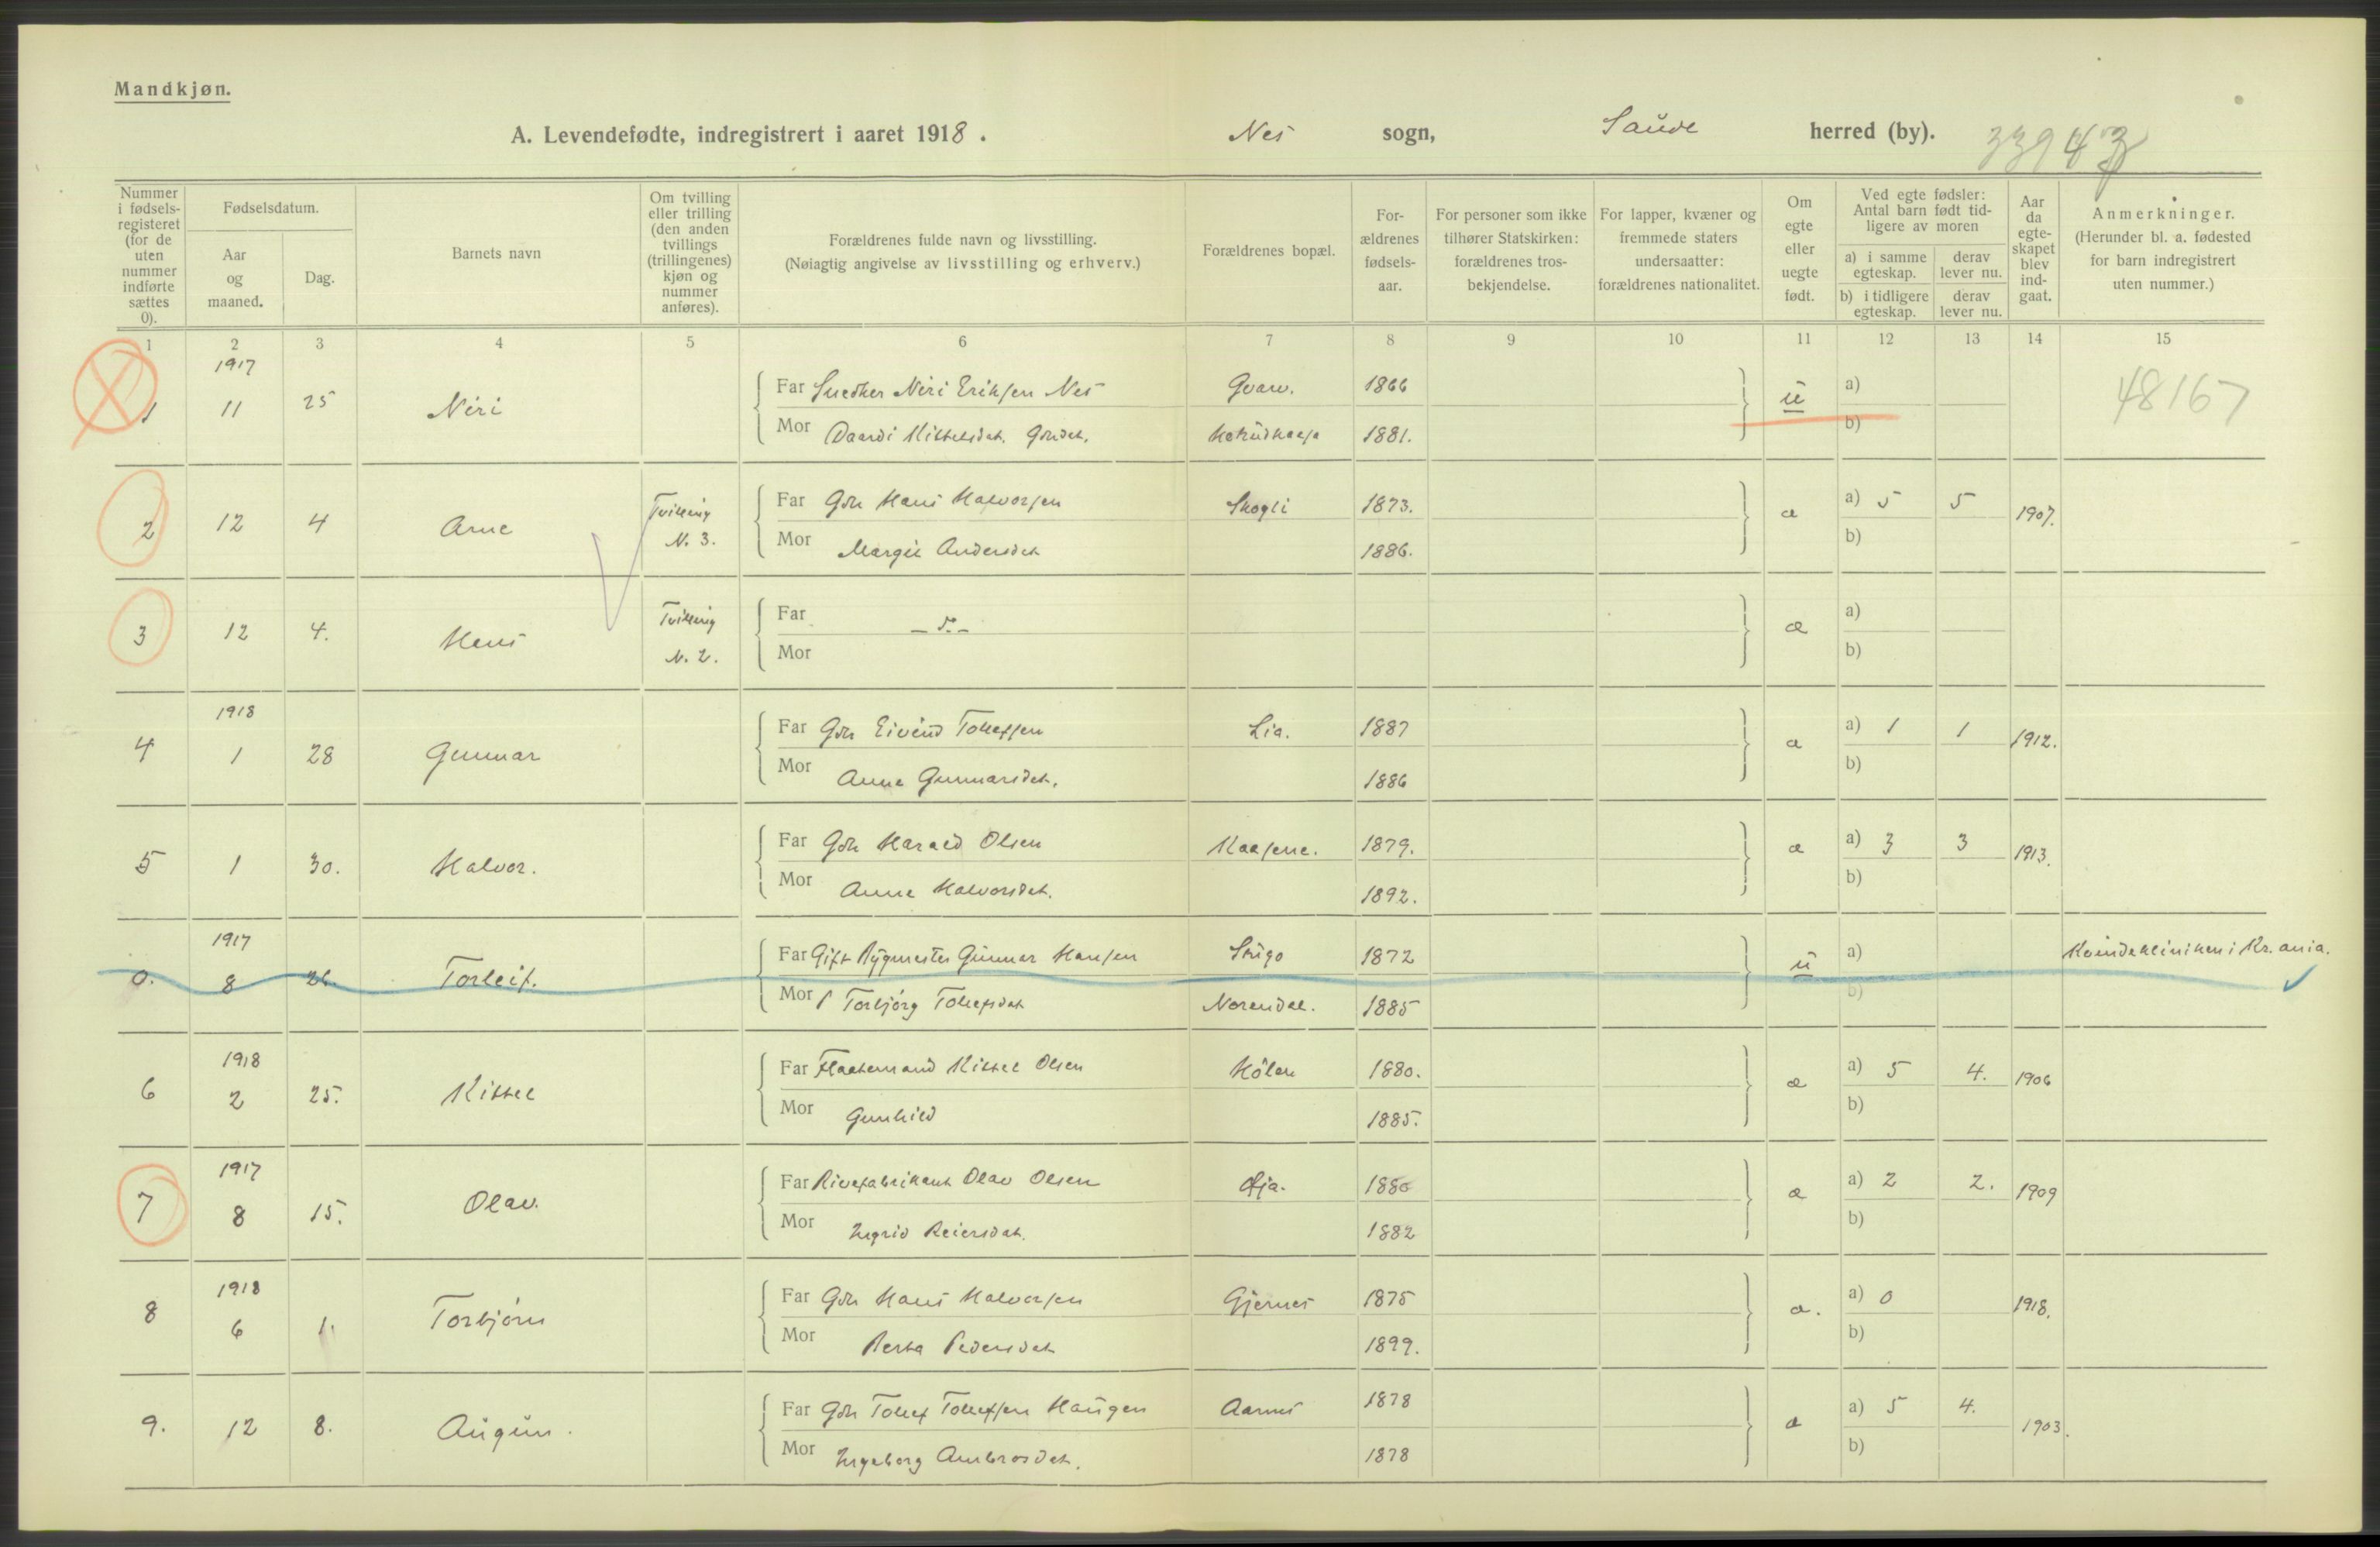 Mandkjøn.
A. Levendefødte, indregistrert i aaret 1918. Nes sogn, Saude herred (by). 33943
Nummer i fødsels-registeret (for de uten nummer indførte sættes 0).
Fødselsdatum.
Aar og maaned.
Dag.
Barnets navn
Om tvilling eller trilling (den anden tvillings (trillingenes) kjøn og nummer anføres).
Forældrenes fulde navn og livsstilling.
(Nøiagtig angivelse av livsstilling og erhverv.)
Forældrenes bopæl.
For-ældrenes fødsels-aar.
For personer som ikke tilhører Statskirken: forældrenes tros-bekjendelse.
For lapper, kvæner og fremmede staters undersaatter: forældrenes nationalitet.
Om egte eller uegte født.
Ved egte fødsler: Antal barn født tid-ligere av moren
a) i samme egteskap. derav lever nu.
b) i tidligere egteskap. derav lever nu.
Aar da egte-skapet blev ind-gaat.
Anmerkninger.
(Herunder bl. a. fødested for barn indregistrert uten nummer.)
1 2 3 4 5 6 7 8 9 10 11 12 13 14 15
1917
1 11 25 Neri Far Snedker Neri Eriksen Nes Gvarv. 1866 u a) 48167
Mor Kittelsdat. Gdrdat. 1881. b)
2 12 4 Arne Tvilling N. 3. Far Gbr Hans Halvorsen Skogli 1873. æ a) 5 5 1907.
Mor Margit Andersdat 1886. b)
3 12 4. Hans Tvilling N. 2. Far æ a)
Mor b)
1918
4 1 28 Gunnar Far Gbr Eivind Tollefsen Lia. 1887 æ a) 1 1 1912.
Mor Anne Gunnarsdat. 1886 b)
5 1 30. Halvor. Far Gbr Harald Olsen Kaasene. 1879. æ a) 3 3 1913.
Mor Anne Halvorsdat. 1892. b)
1917
0. 8 26. Torleif. Far Gift Bygmester Gunnar Hansen 1872 u a) Kvindekliniken i Kr.ania.
Mor Torbjørg Tollefsdat Norendal. 1885 b)
1918
6 2 25. Kittel Far Kittel Olsen 1880. æ a) 5 4. 1906
Mor Gunhild 1885. b)
1917
7 8 15. Olav. Far Rivefabrikant Olav Olsen 1880 æ a) 2 2. 1909
Mor Ingrid Reiersdat. 1882 b)
1918
8 6 1. Torbjørn Far Gbr Hans Halvorsen Gjernes 1875 æ. a) 0 1918.
Mor Berta Pedersdat 1899. b)
9. 12 8. Augun. Far Gbr Tollef Tollefsen Haugen Aarnes 1878 æ a) 5 4. 1903.
Mor Ingeborg Ambrosdat. 1878 b)